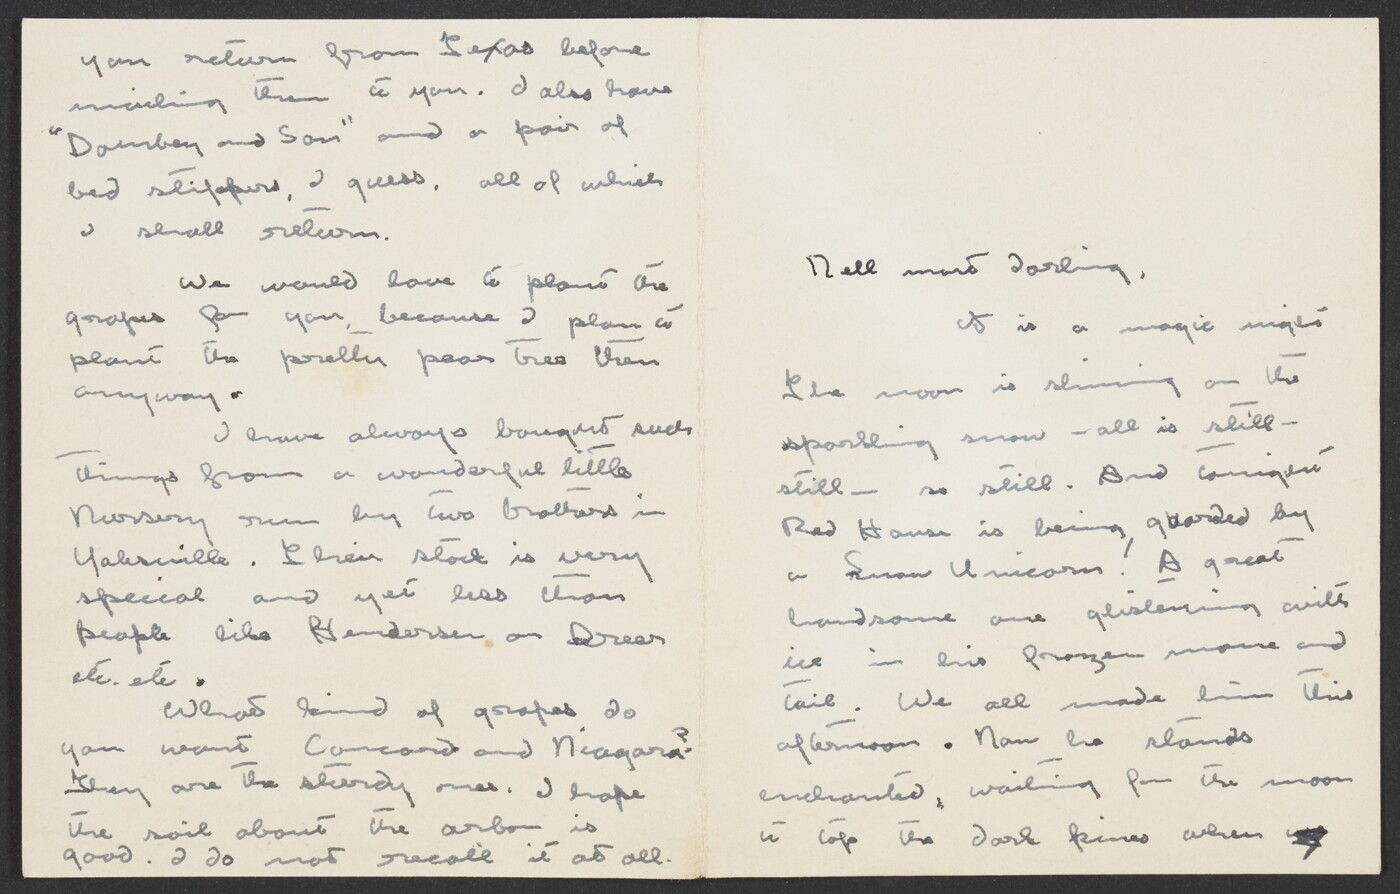 you return from Texas before
mailing them to you. I also have
"Dombey and Son" and a pair of
bed slippers, I guess, all of which
I shall return.
We would love to plant the
grapes for you, because I plan to
plant the pretty pear tree then
anyway.
I have always bought such
things from a wonderful little
Nursery run by two brothers in
Yalesville. Their stock is very
special and yet less than
people like Henderson or Dreer
etc. etc.
What kind of grapes do
you want Concord and Niagara?
They are the sturdy ones. I hope
the soil about the arbor is
good. I do not recall it at all.
Nell most darling,
It is a magic night
The moon is shining on the
sparkling snow - all is still -
still - so still. And tonight
Red House is being guarded by
a Snow Unicorn! A great
handsome one glistening with
ice in his frozen mane and
tail. We all made him this
afternoon. Now he stands
enchanted, waiting for the moon
to top the dark pines when